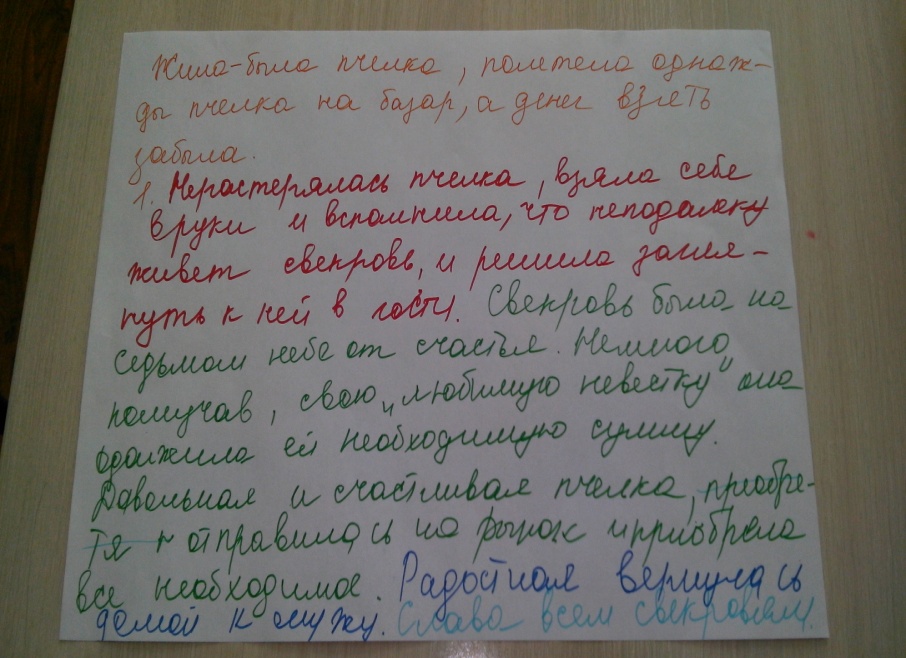 Жила-была пчелка, полетела однаж-
ды пчелка на базар, а денег взять
забыла.
1. Нерастерялась пчелка, взяла себе
в руки и вспомнила, что неподалеку
живет свекровь, и решила загля-
нуть к ней в гости. Свекровь была на
седьмом небе от счастья. Немного
помучав, свою „любимую невестку" она
одолжила ей необходимую сумму.
Давольная и счастливая пчелка, приобре-
тя отправилась на рынок и приобрела
все необходимое. Радостная вернулась
домой к мужу. Слава всем свекровям!